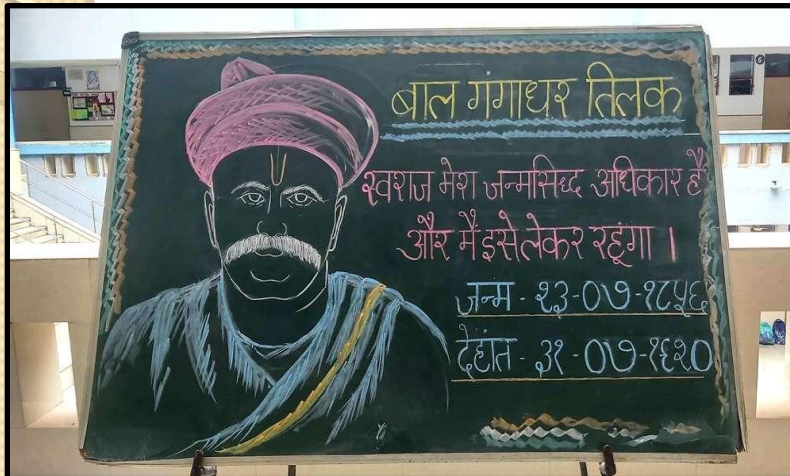 बाल गंगाधर तिलक
स्वराज मेरा जन्मसिध्द अधिकार है
और मै इसे लेकर रहूंगा ।
जन्म - २३-०७-१८५६
देहांत - ३१-०७-१९२०